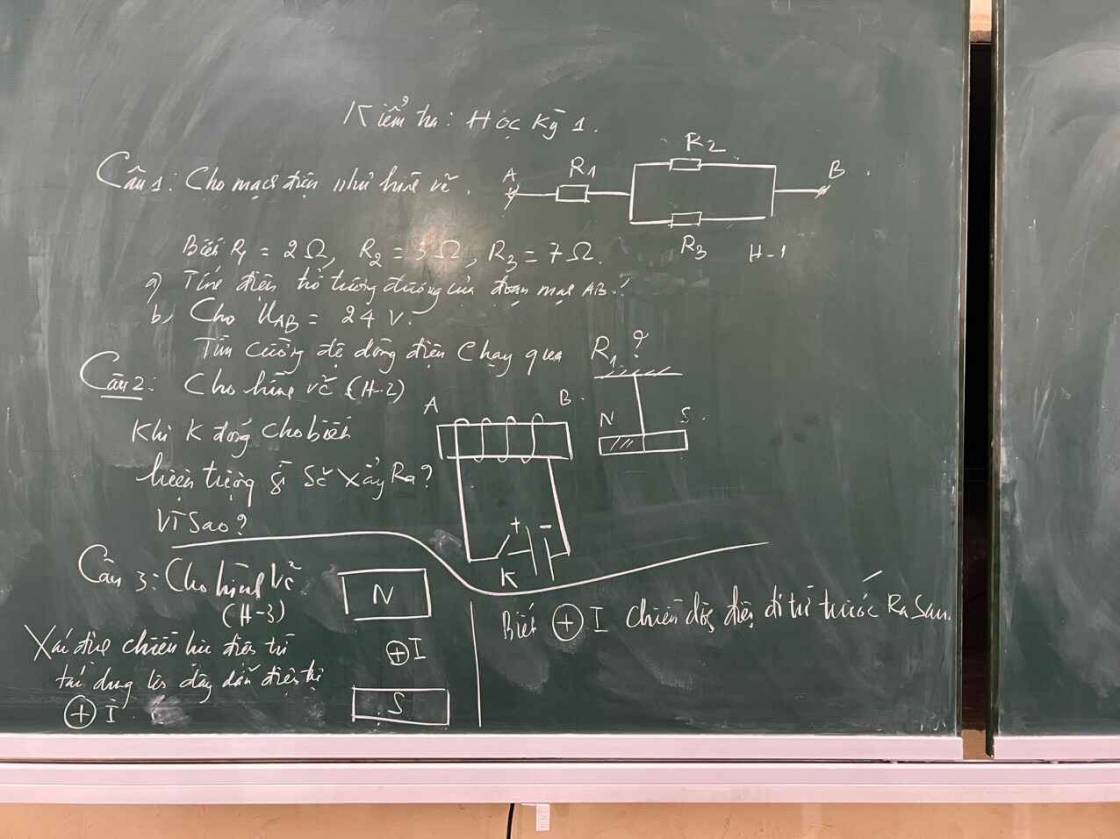 Kiểm tra: Học kỳ 1.
Câu 1: Cho mạch điện như hình vẽ.
A R1 R2 R3 B H-1
Biết R1 = 2Ω, R2 = 3Ω, R3 = 7Ω.
a) Tính điện trở tương đương của đoạn mạch AB.
b) Cho UAB = 24 V.
Tìm cường độ dòng điện chạy qua R1?
Câu 2: Cho hình vẽ (H-2)
Khi K đóng cho biết
hiện tượng gì sẽ xảy Ra?
Vì Sao?
A B
N S
+ -
K
Câu 3: Cho hình vẽ
(H-3)
Xác định chiều lực điện từ
tác dụng lên dây dẫn điện
+ I
N
+ I
S
Biết + I chiều dòng điện đi từ trước Ra Sau.